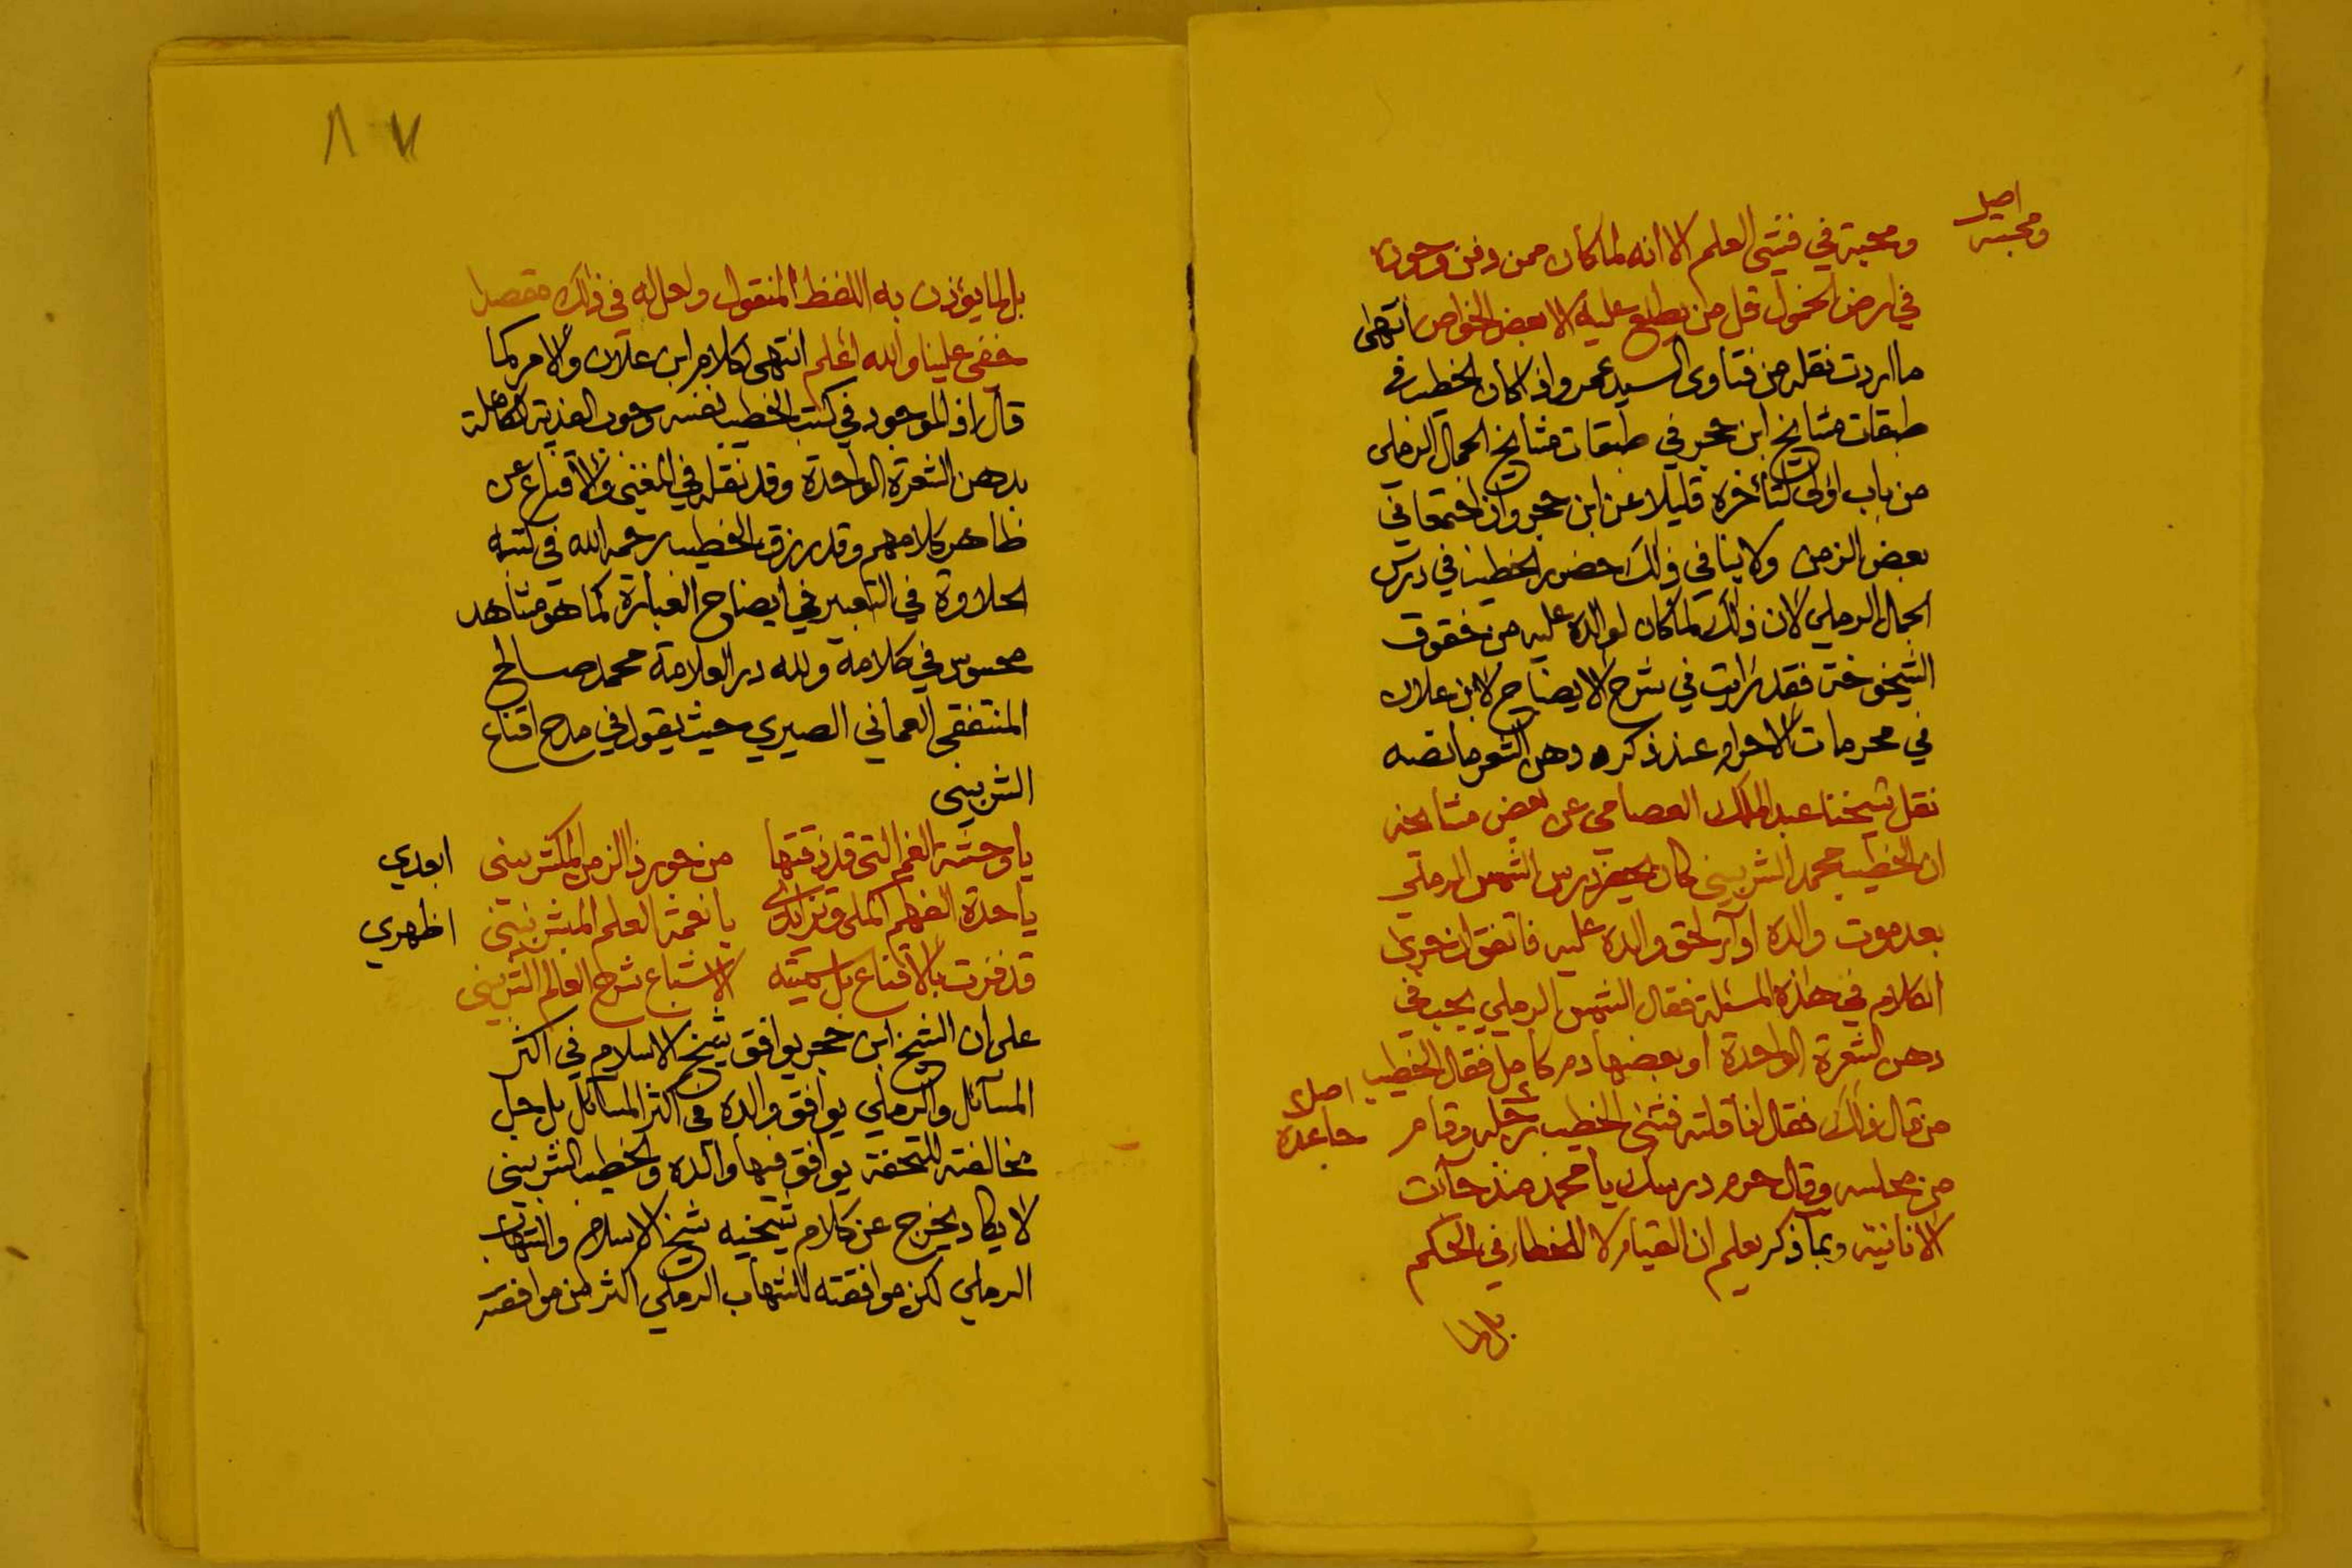 اصل
ومحبته
ومحبة في فنتى العلم الا انه لما كان ممن دفن وجوده
في ارض الخمول قل من يطلع عليه الا بعض الخواص انتهى
ما اردت نقله من فتاوى السيد عمر واذا كان الخطيب في
طبقات مشايخ ابن حجر في طبقات مشايخ الجمال الرملي
من باب اولى لتأخره قليلا عن ابن حجر وان اجتمعا في
بعض الزمن ولا ينافي ذلك حضور الخطيب في درس
الجمال الرملي لان ذلك لما كان لوالده عليه من حقوق
الشيخوخة فقد رايت في شرح الايضاح لابن علان
في محرمات الاحرام عند ذكره دهن الشعر ما نصه
نقل شيخنا عبد الملك العصامي عن بعض مشايخه
ان الخطيب محمد الشربيني كان يحضر درس الشمس الرملي
بعد موت والده اداء لحق والده عليه فاتفق ان جرى
الكلام في هذه المسئلة فقال الشمس الرملي يجب في
دهن الشعرة الواحدة او بعضها دم كامل فقال الخطيب
من قال ذلك فقال انا قلته فثنى الخطيب رجله وقام
اصل
من مجلسه وقال حرم درسك يا محمد منذ جاءت
الانانية وبما ذكر يعلم ان القيام لا للخطاء في الحكم
بل لما
٨
بل لما يؤذن به اللفظ المنقول ولعل له في ذلك مقصدا
خفي علينا والله اعلم انتهى كلام ابن علان والامر كما
قال اذ الموجود في كتب الخطيب نفسه وجوب الفدية الكاملة
بدهن الشعرة الواحدة وقد نقله في المغني والاقناع عن
ظاهر كلامهم وقد رزق الخطيب رحمه الله في كتبه
الحلاوة في التعبير في ايضاح العبارة كما هو مشاهد
محسوس في كلامه ولله در العلامة محمد صالح
المنتفقي العماني الصيري حيث يقول في مدح اقناع
الشربيني
يا وحشة الغم التي قد ذقتها من جور ذا الزمن المكتر بيني
ابعدي
يا حدة الفهم يا نعمة العلم المبشر بيني
اظهري
قد فزت بالاقناع بل سميته الاشباع شرح العالم الشربيني
على ان الشيخ ابن حجر يوافق شيخ الاسلام في اكثر
المسائل والرملي يوافق والده في اكثر المسائل بل جل
مخالفته للتحفة يوافق فيها والده والخطيب الشربيني
لا يكاد يخرج عن كلام شيخيه شيخ الاسلام والشهاب
الرملي لكن موافقته للشهاب الرملي اكثر من موافقته